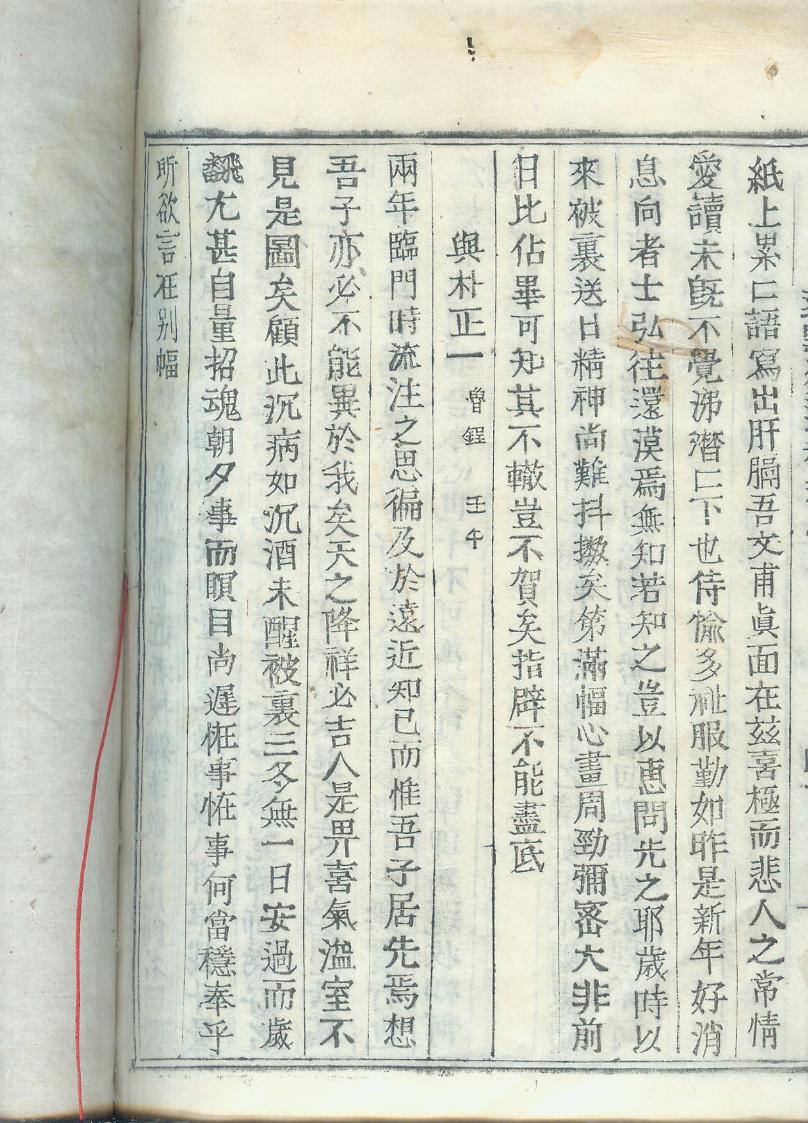 紙上累仁語寫出肝膈吾文甫眞面在玆喜極而悲人之常情
愛讀未旣不覺涕潛仁下也侍愉多祉服勤如昨是新年好消
息向者士弘往還漠焉無知若知之豈以惠問先之耶歲時以
來被裏送日精神尚難抖擻矣第滿幅心畫周勁彌密大非前
日比佔畢可知其不轍豈不賀矣指脾不能盡底
與朴正一 魯鋥 壬午
兩年臨門時流注之思徧及於遠近知已而惟吾子居先焉想
吾子亦必不能異於我矣天之降祥必吉人是畀喜氣溢室不
見是圖矣顧此沉病如沉酒未醒被裏三冬無一日安過而歲
飜尤甚自量招魂朝夕事而瞑目尚遲恠事恠事何當穩奉乎
所欲言在別幅